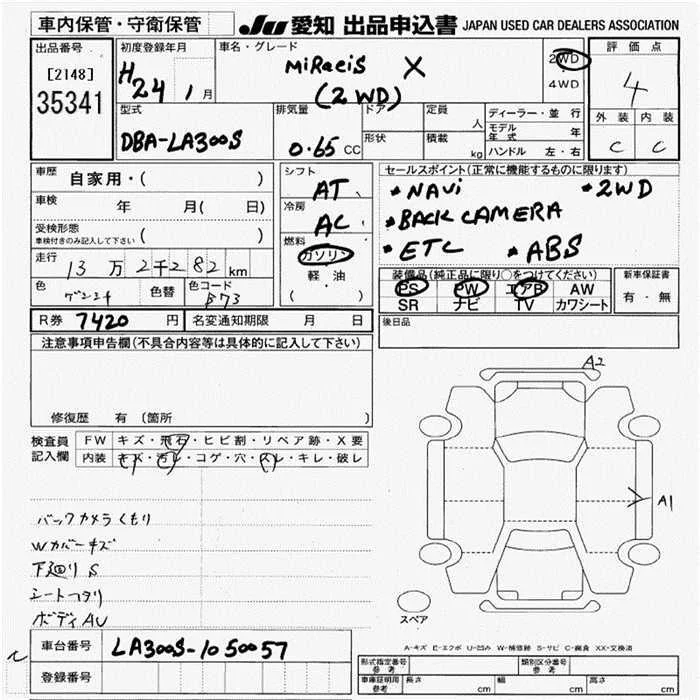 車内保管・守衛保管
JU 愛知 出品申込書 JAPAN USED CAR DEALERS ASSOCIATION
出品番号
[2148]
35341
初度登録年月
H24 1月
車名・グレード
MiRaeiS X
(2WD)
2WD
・
4WD
評価点
4
外装 内装
C C
型式
DBA-LA300S
排気量
0.65 CC
ドア
形状
定員
人
積載
kg
ディーラー・並行
モデル年式 年
ハンドル 左・右
車歴 自家用・( )
車検 年 月( 日)
受検形態
車検付きのみ記入して下さい ( )
走行 13万2千282km
色
色替
色コード
B73
シフト
AT
冷房
AC
燃料
ガソリン
・
軽油
( )
セールスポイント(正常に機能するものに限ります)
*NAVi *2WD
*BACK CAMERA
*ETC *ABS
装備品(純正品に限り○をつけてください)
PS PW エアB AW
SR ナビ TV カワシート
新車保証書
有・無
R券 7420 円
名変通知期限 月 日
後日品
注意事項申告欄(不具合内容等は具体的に記入して下さい)
修復歴 有 (箇所 )
検査員記入欄
FW キズ・飛石・ヒビ割・リペア跡・X要
内装 キズ・汚レ・コゲ・穴・スレ・キレ・破レ
バックカメラくもり
Wカバーキズ
下廻りS
シートヘタリ
ボディAU
A2
A1
スペア
A-キズ E-エクボ U-凹み W-補修跡 S-サビ C-腐食 XX-交換済
車台番号 LA300S-1050057
登録番号
形式指定番号
参考
類別区分番号
参考
車庫証明用
参考
長さ cm 幅 cm 高さ cm